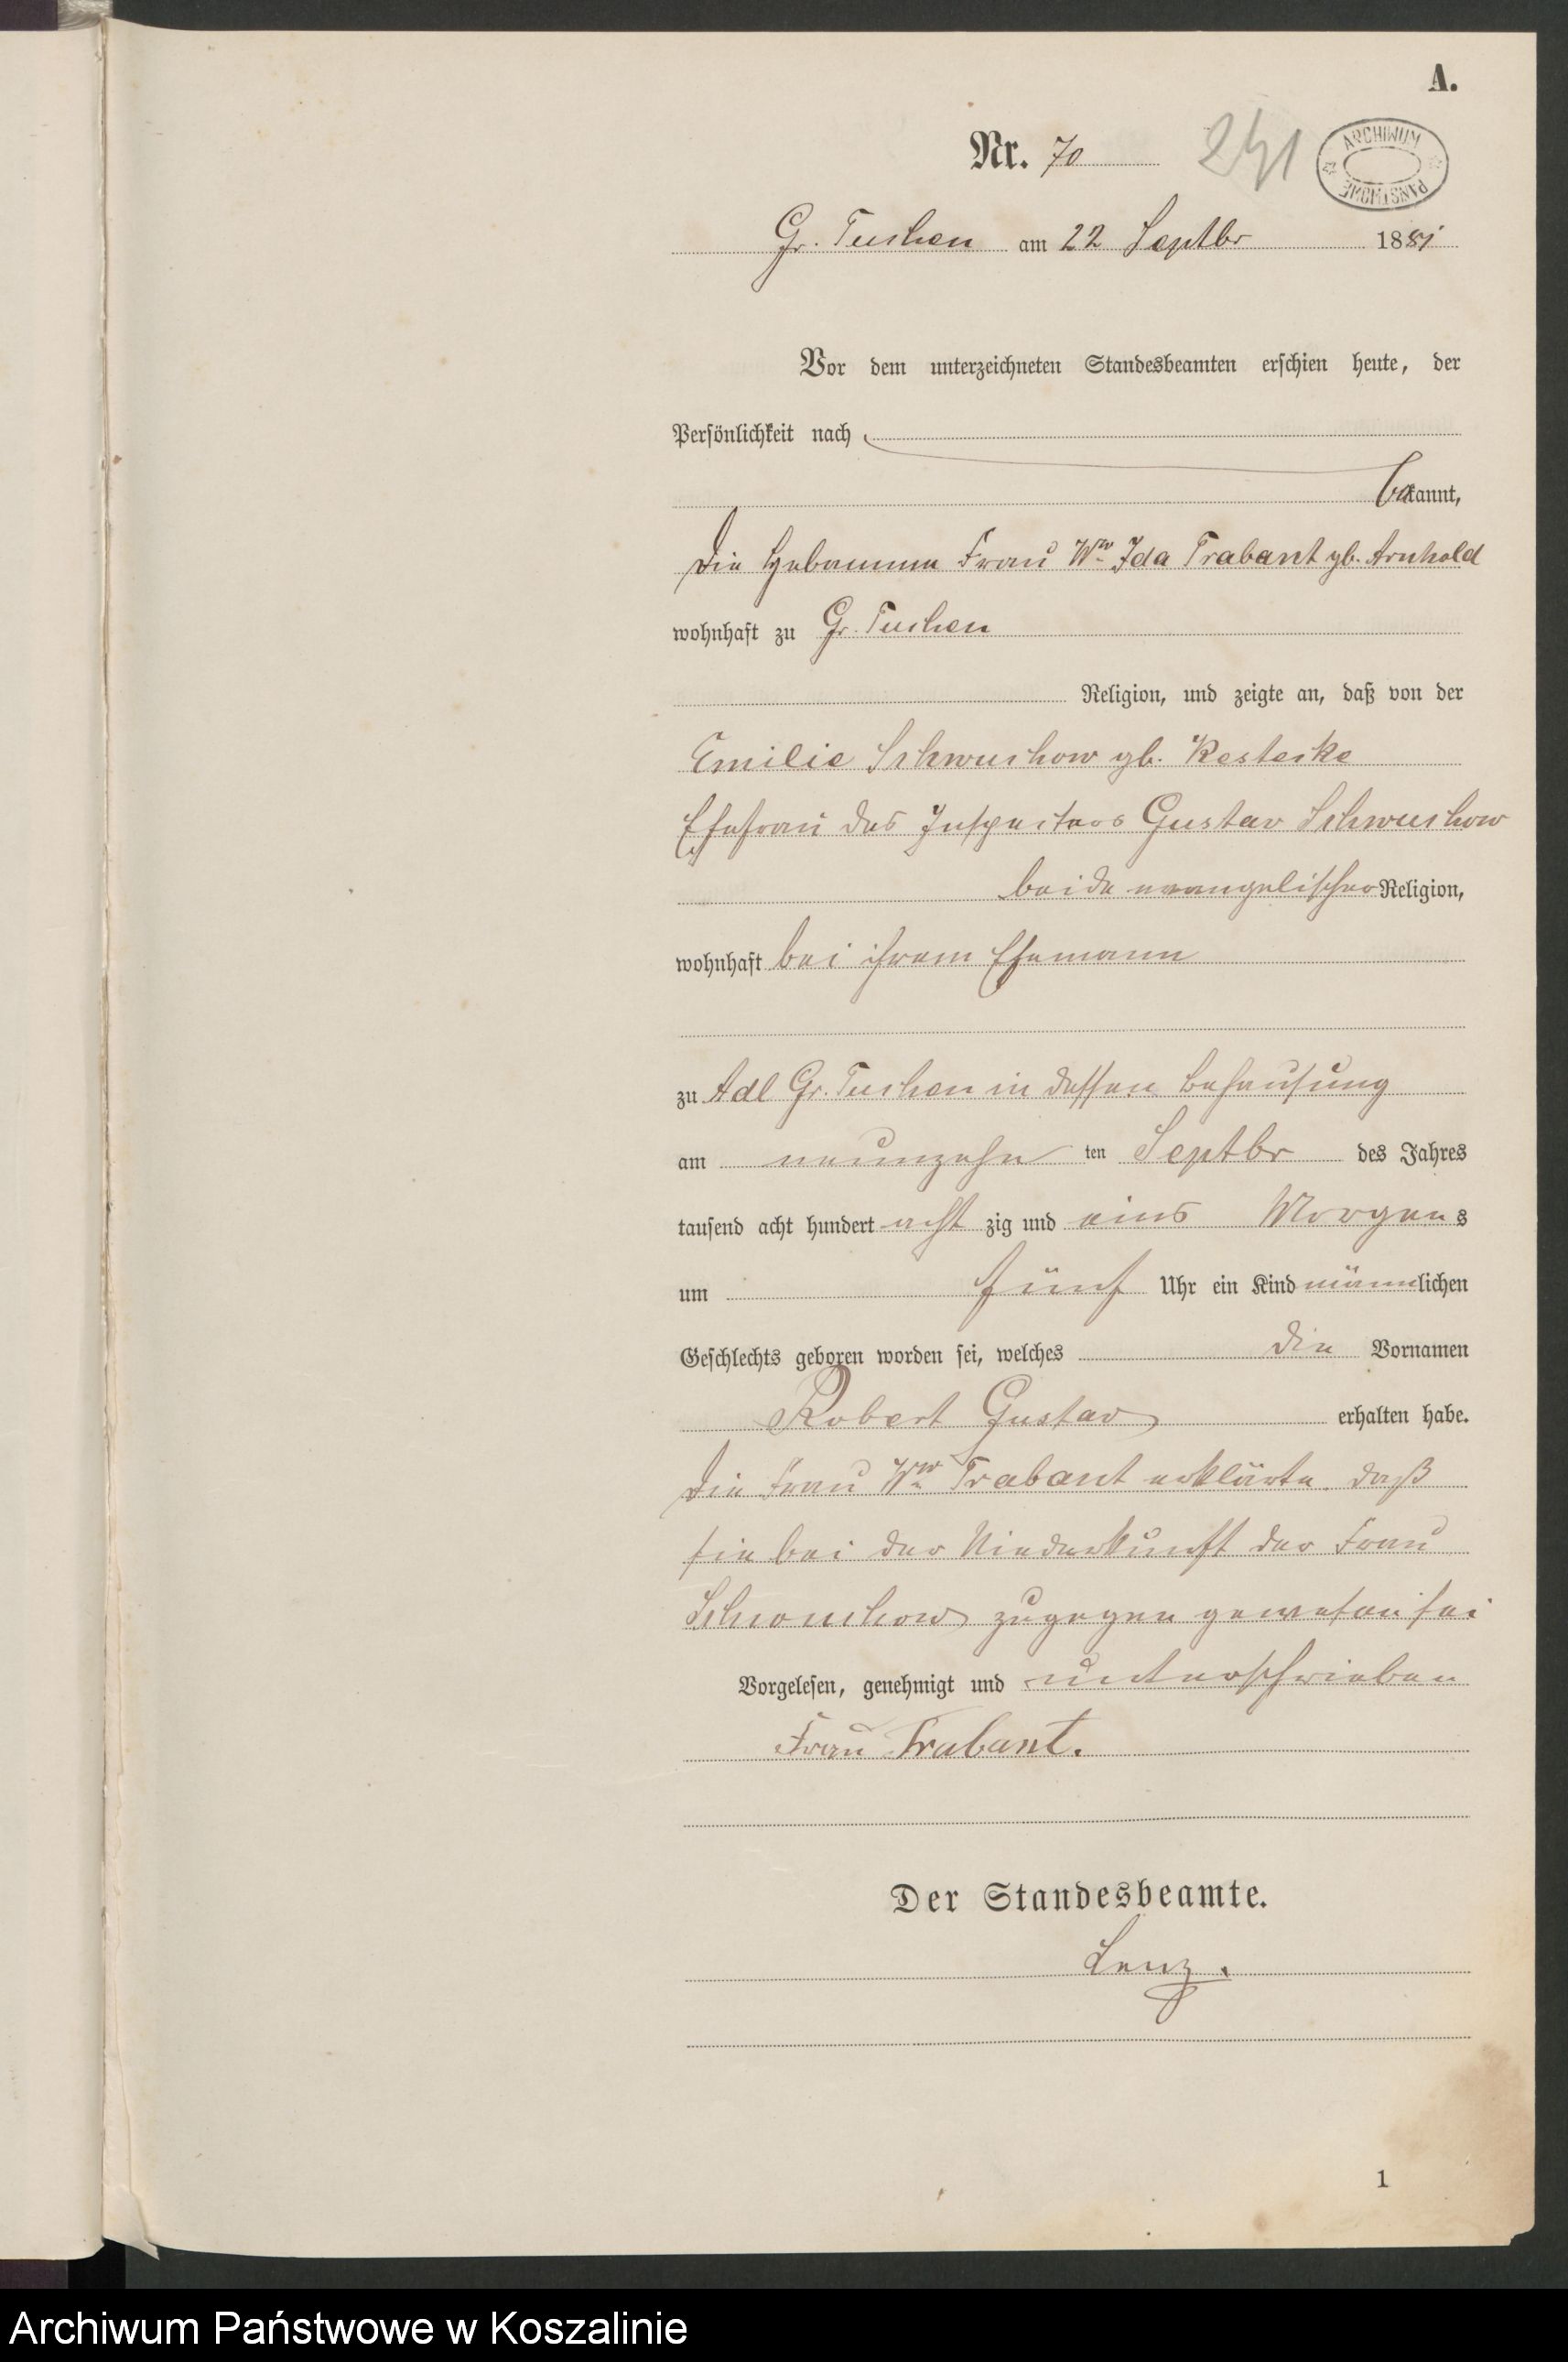 A.
Nr. 70 241
ARCHIWUM PAŃSTWOWE
Gr. Tuchen am 22 Septbr 1881
Vor dem unterzeichneten Standesbeamten erschien heute, der
Persönlichkeit nach
bekannt,
die Hebamme Frau Ww Ida Trabant gb. Arnhold
wohnhaft zu Gr. Tuchen
Religion, und zeigte an, daß von der
Emilie Schwuchow gb. Resteske
Ehefrau des Inspectors Gustav Schwuchow
beide evangelischer Religion,
wohnhaft bei ihrem Ehemann
zu Adl Gr. Tuchen in dessen Behausung
am neunzehn ten Septbr des Jahres
tausend acht hundert acht zig und eins Morgens
um fünf Uhr ein Kind männlichen
Geschlechts geboren worden sei, welches die Vornamen
Robert Gustav erhalten habe.
Die Frau Ww Trabant erklärte, daß
sie bei der Niederkunft der Frau
Schwuchow zugegen gewesen sei
Vorgelesen, genehmigt und unterschrieben
Frau Trabant.
Der Standesbeamte.
Lenz.
1
Archiwum Państwowe w Koszalinie